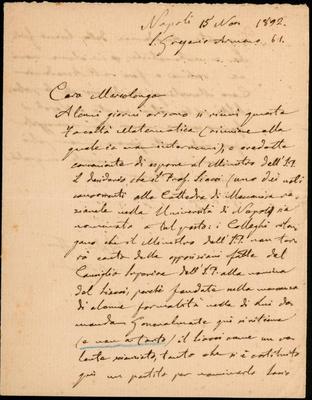 Napoli 15 Nov. 1892.
S. Gregorio Armeno 61.
Caro Mercolongo
Alcuni giorni or sono si riunì questa
Facoltà Matematica (riunione alla
quale io non intervenni), e credette
conveniente di esporre al Ministro dell'I.P.
il desiderio che il Prof. Siacci (uno dei noti
concorrenti alla Cattedra di Meccanica ra-
zionale nella Università di Napoli) sia
nominato a tal posto: i Colleghi
che il Ministro dell'I.P. non
conto delle opposizioni fatte dal
Consiglio Superiore dell'I.P. alla nomina
del Siacci, perchè fondate nella mancanza
di alcune formalità nella di lui do-
manda. Generalmente qui si ritiene
(e non a torto) il Siacci come un va-
lente scienziato, tanto che si è costituito
qui un partito per nominarlo